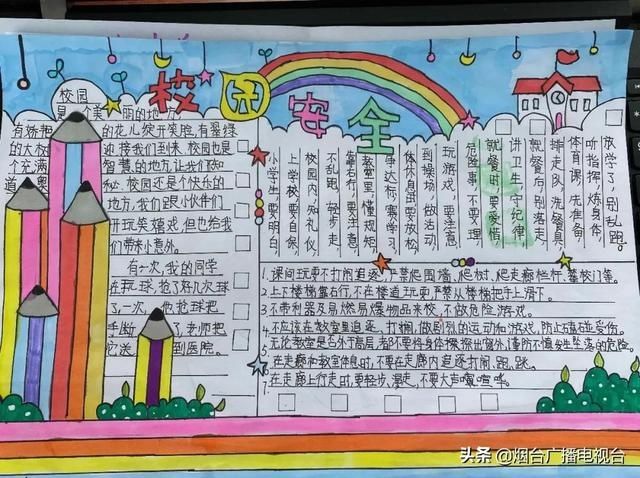 校园安全
校园
是一个美丽的地方
有娇艳的花儿绽开笑脸,有翠绿
的大树迎接我们到来,校园也是
个充满智慧的地方,让我们知
道奥秘,校园还是个快乐的
地方,我们跟小伙伴们
开玩笑嬉戏,但也给我
们带来小意外。
有一次,我的同学
在玩球,抢了好几次球
了,一次,他抢球把
手断了,老师把
它送到医院。
小学生,要明白
上学校,要自保
校园内,知礼仪
不乱跑,轻步走
靠右行,要
教室里,懂规矩
争达标,要学习
休息出,要放松
到操场,做活动
玩游戏,要注意
危险事,不要理
就餐时,要爱惜,
讲卫生,守纪律
就餐向,别落走
排走队,洗餐具,
体育课,先准备
听指挥,炼身体,
放学了,别乱跑。
1.课间玩耍不打闹追逐,严禁爬围墙、爬树、爬走廊栏杆、攀校门等。
2.上下楼梯靠右行,不在楼道玩耍,严禁从楼梯把手上滑下。
3.不带利器及易燃易爆物品来校,不做危险游戏。
4.不应该在教室里追逐、打闹,做剧烈的运动和游戏,防止磕碰受伤。
5.无论教室是否处于高层,者都不要将身体探出窗外,谨防不慎发生坠落的危险。
6.在走廊和教室休息时,不要在走廊内追逐打闹、跑、跳。
7.在走廊上行走时,要轻步、漫走,不要大声喧哗。
头条@烟台广播电视台